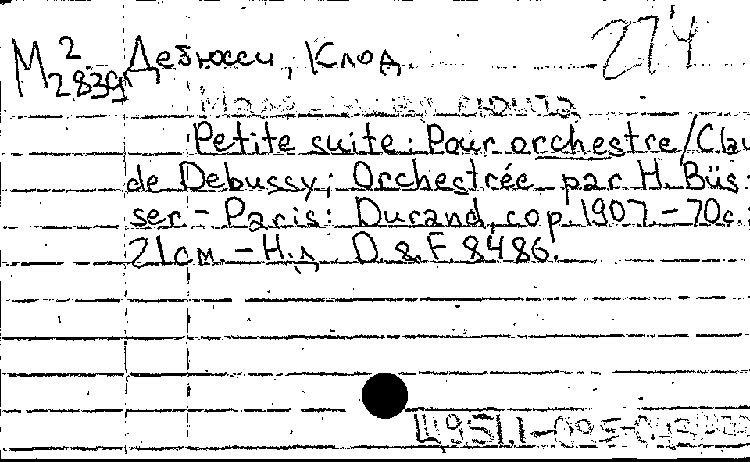 М 2/2839 Дебюсси, Клод 274
Маленькая сюита
Petite suite: Pour orchestre/Clau
de Debussy; Orchestrée par H. Büs-
ser - Paris: Durand, cop. 1907. - 70c.;
21см. - Н.д. D. & F. 8486.